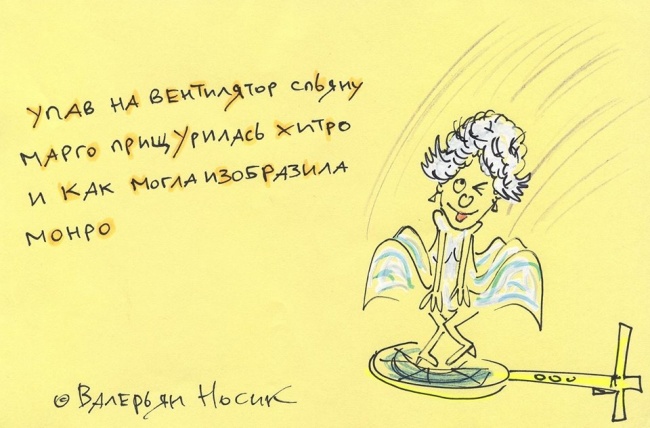 УПАВ НА ВЕНТИЛЯТОР СПЬЯНУ
МАРГО ПРИЩУРИЛАСЬ ХИТРО
И КАК МОГЛА ИЗОБРАЗИЛА
МОНРО
© ВАЛЕРЬЯН НОСИК